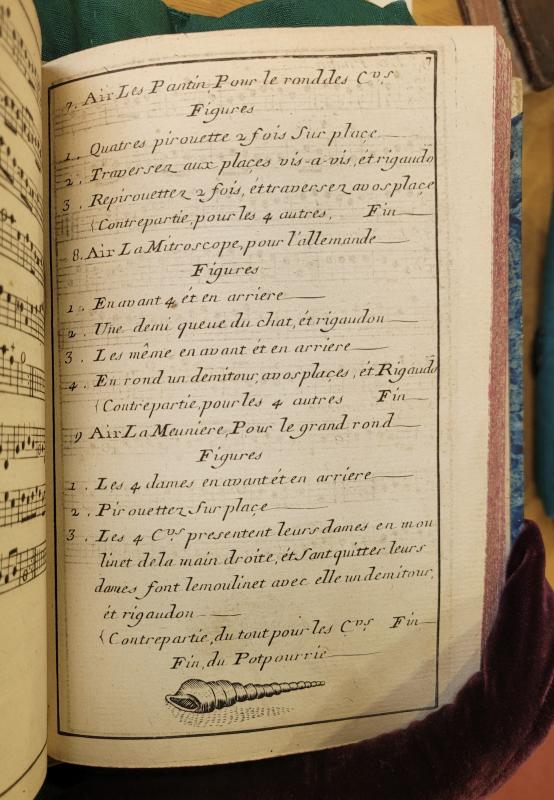 7
7. Air Les Pantin, Pour le rond des Cvrs
Figures
1. Quatres pirouette 2 fois Sur plaçe
2. Traversez aux plaçes vis-a-vis, ét rigaudo
3. Repirouettez 2 fois, ét traversez avos plaçe
{Contrepartie, pour les 4 autres. Fin
8. Air La Mitroscope, pour l'allemande
Figures
1. En avant 4 ét en arriere
2. Une demi queue du chat, ét rigaudon
3. Les même en avant ét en arriere
4. En rond un demi tour, avos plaçes, ét Rigaudo
{Contrepartie, pour les 4 autres Fin
9 Air La Meuniere, Pour le grand rond
Figures
1. Les 4 dames en avant ét en arriere
2. Pirouettez Sur plaçe
3. Les 4 Cvrs presentent leurs dames en mou
linet dela main droite, ét Sant quitter leurs
dames font lemoulinet avec elle un demi tour,
ét rigaudon
{Contrepartie, du tout pour les Cvrs Fin
Fin, du Potpourrie